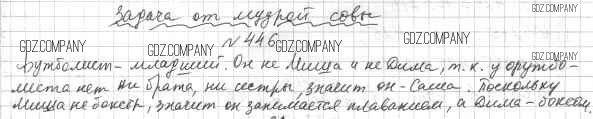 Задача от мудрой совы
GDZ.COMPANY
GDZ.COMPANY GDZ.COMPANY GDZ.COMPANY
№ 446
GDZ.COMPANY
Футболист - младший. Он не Миша и не Дима, т. к. у футбо-
листа нет ни брата, ни сестры, значит он - Саша. Поскольку
Миша не боксёр, значит он занимается плаванием, а Дима - боксом.